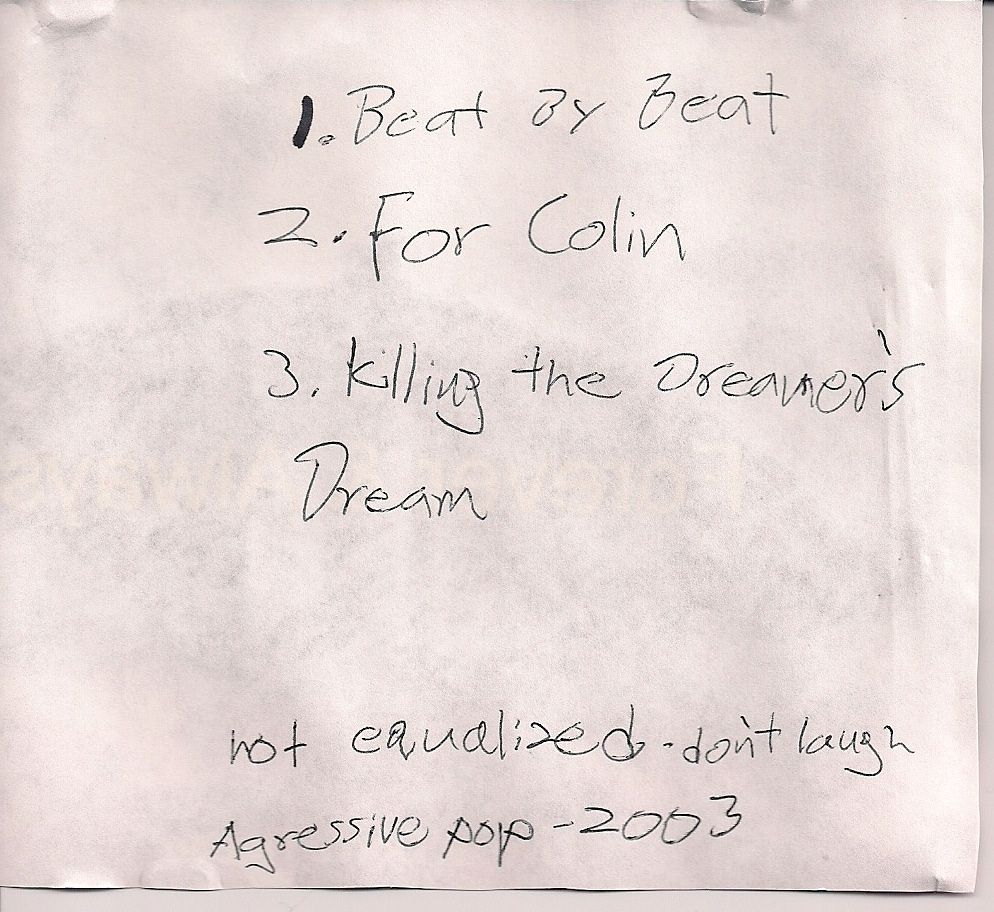 1. Beat By Beat
2. For Colin
3. Killing the Dreamer's
Dream
Forever & Always
not equalized - don't laugh
Agressive pop - 2003